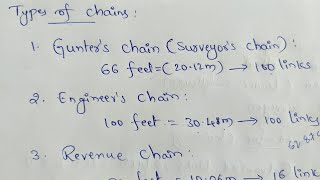 Types of chains:
1. Gunter's chain (Surveyor's chain):
66 feet=(20.12m) → 100 links
2. Engineer's Chain:
100 feet = 30.48m → 100 links
3. Revenue Chain:
16 links